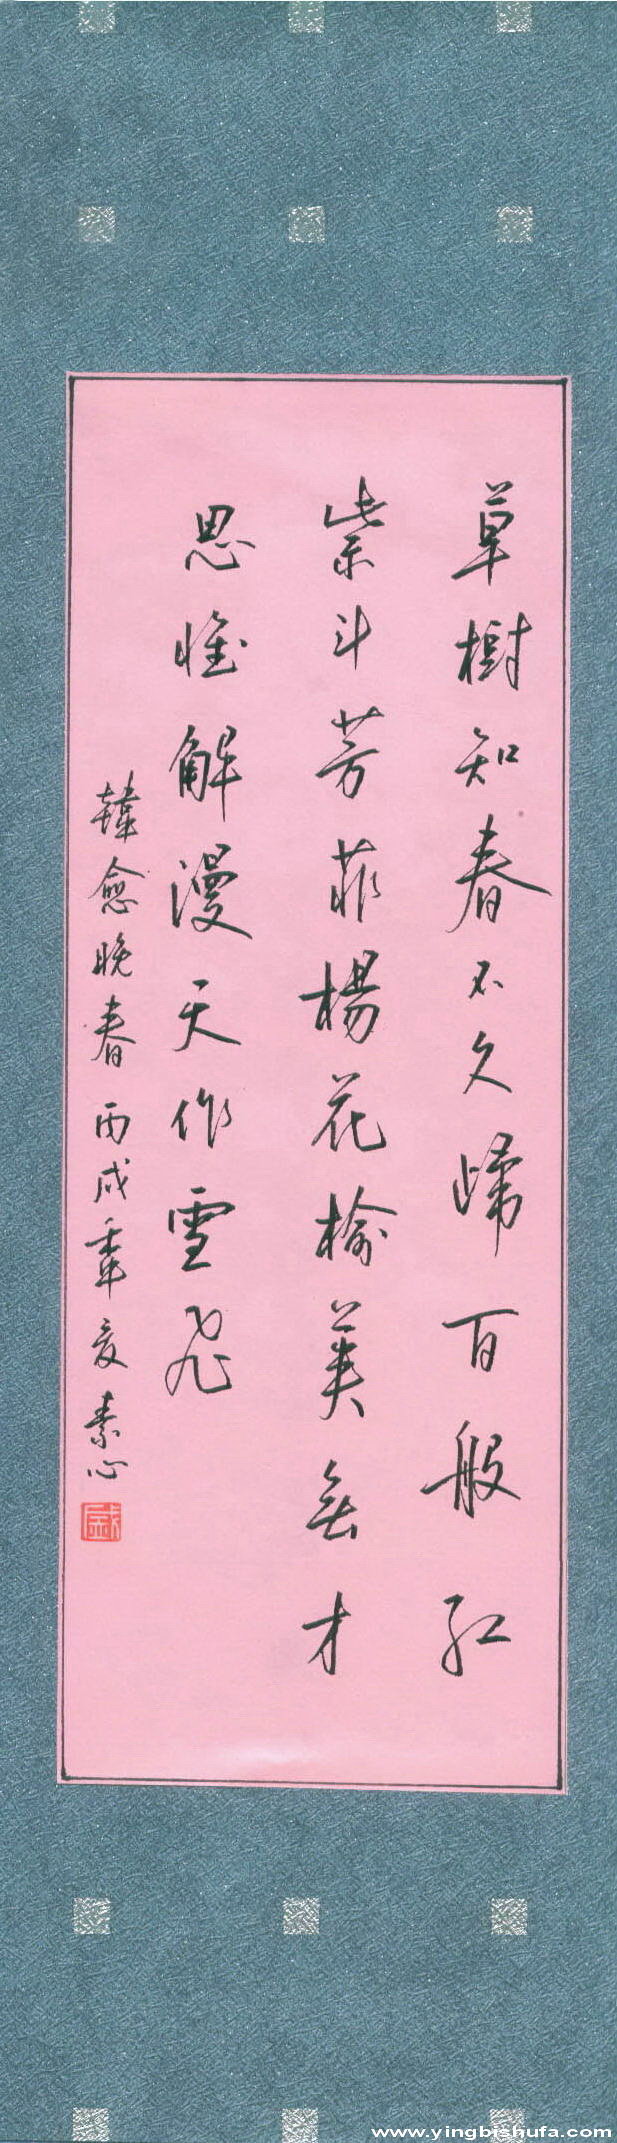 草樹知春不久歸百般紅
紫斗芳菲楊花榆英無才
思惟解漫天作雪飛
韓愈晚春丙戌年夏素心
www.yingbishufa.com